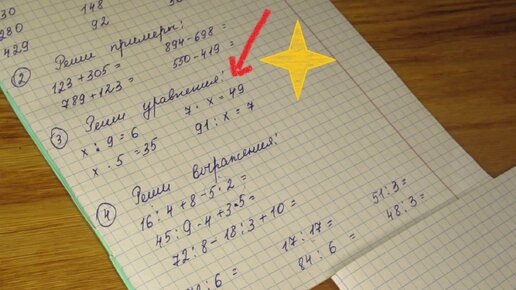 30 148
280 92
429
② Реши примеры:
123+305= 894-698=
789+123= 550-419=
③ Реши уравнения:
x : 9 = 6 7 · x = 49
x · 5 = 35 91 : x = 7
④ Реши выражения:
16 : 4 + 8 - 5 · 2 =
45 : 9 - 4 + 3 · 5 =
72 : 8 - 18 : 3 + 10 =
17 : 17 = 51 : 3 =
84 : 6 = 48 : 3 =
: 6 =